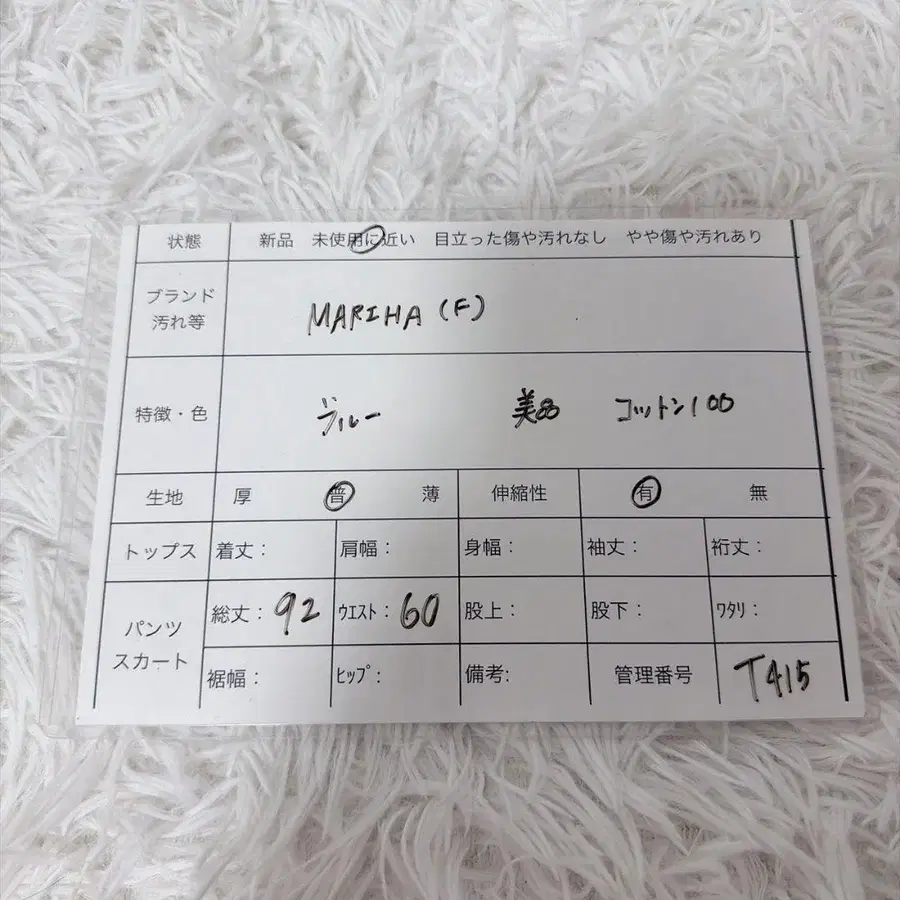 状態 新品 未使用に近い 目立った傷や汚れなし やや傷や汚れあり
ブランド
汚れ等
MARIHA (F)
特徴・色 ブルー 美品 コットン100
生地 厚 普 薄 伸縮性 有 無
トップス 着丈: 肩幅: 身幅: 袖丈: 裄丈:
パンツ
スカート
総丈: 92 ウエスト: 60 股上: 股下: ワタリ:
裾幅: ヒップ: 備考: 管理番号 T415